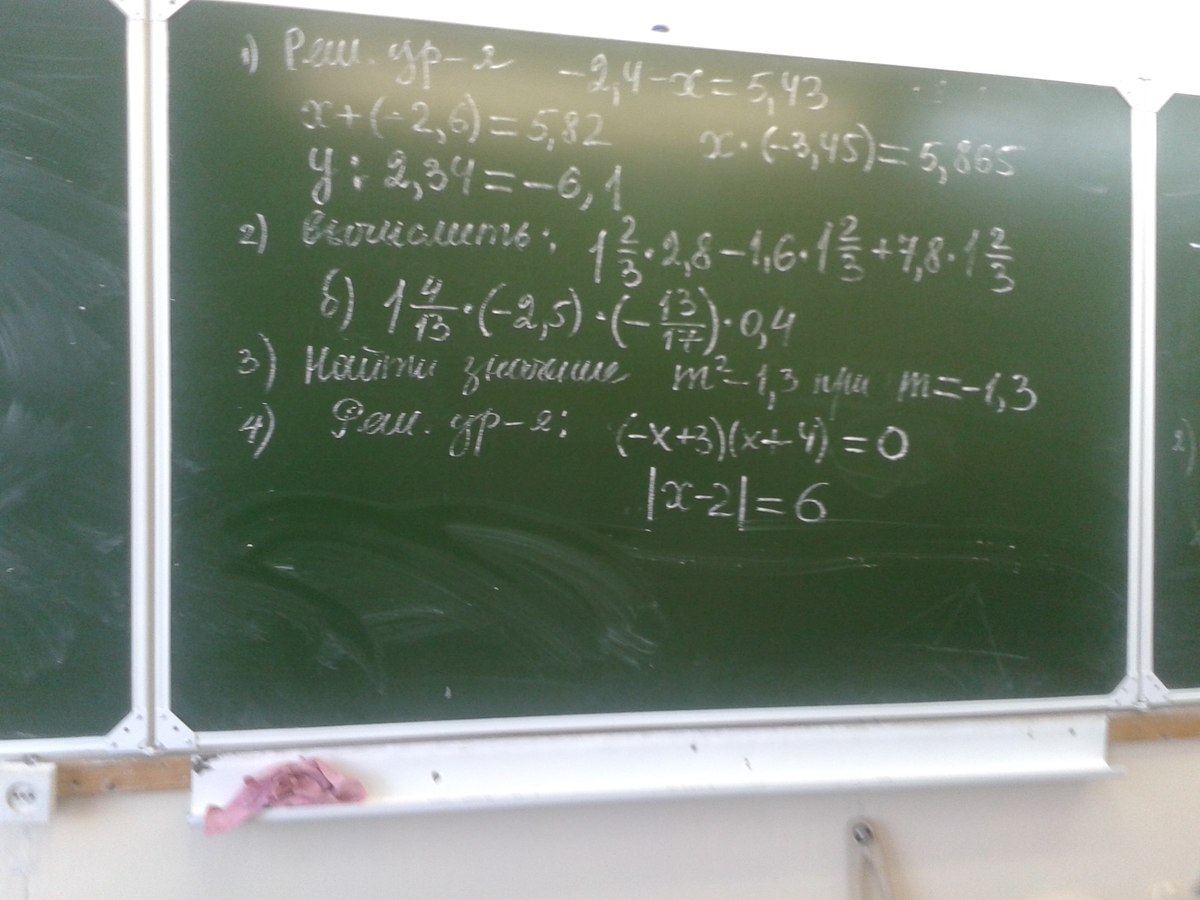 1) Реш. ур-я -2,4-x=5,43
x+(-2,6)=5,82 x·(-3,45)=5,865
y:2,34=-6,1
2) Вычислить: 1 2/3·2,8-1,6·1 2/3+7,8·1 2/3
б) 1 4/13·(-2,5)·(-13/17)·0,4
3) Найти значение m²-1,3 при m=-1,3
4) Реш. ур-я: (-x+3)(x+4)=0
|x-2|=6
2)